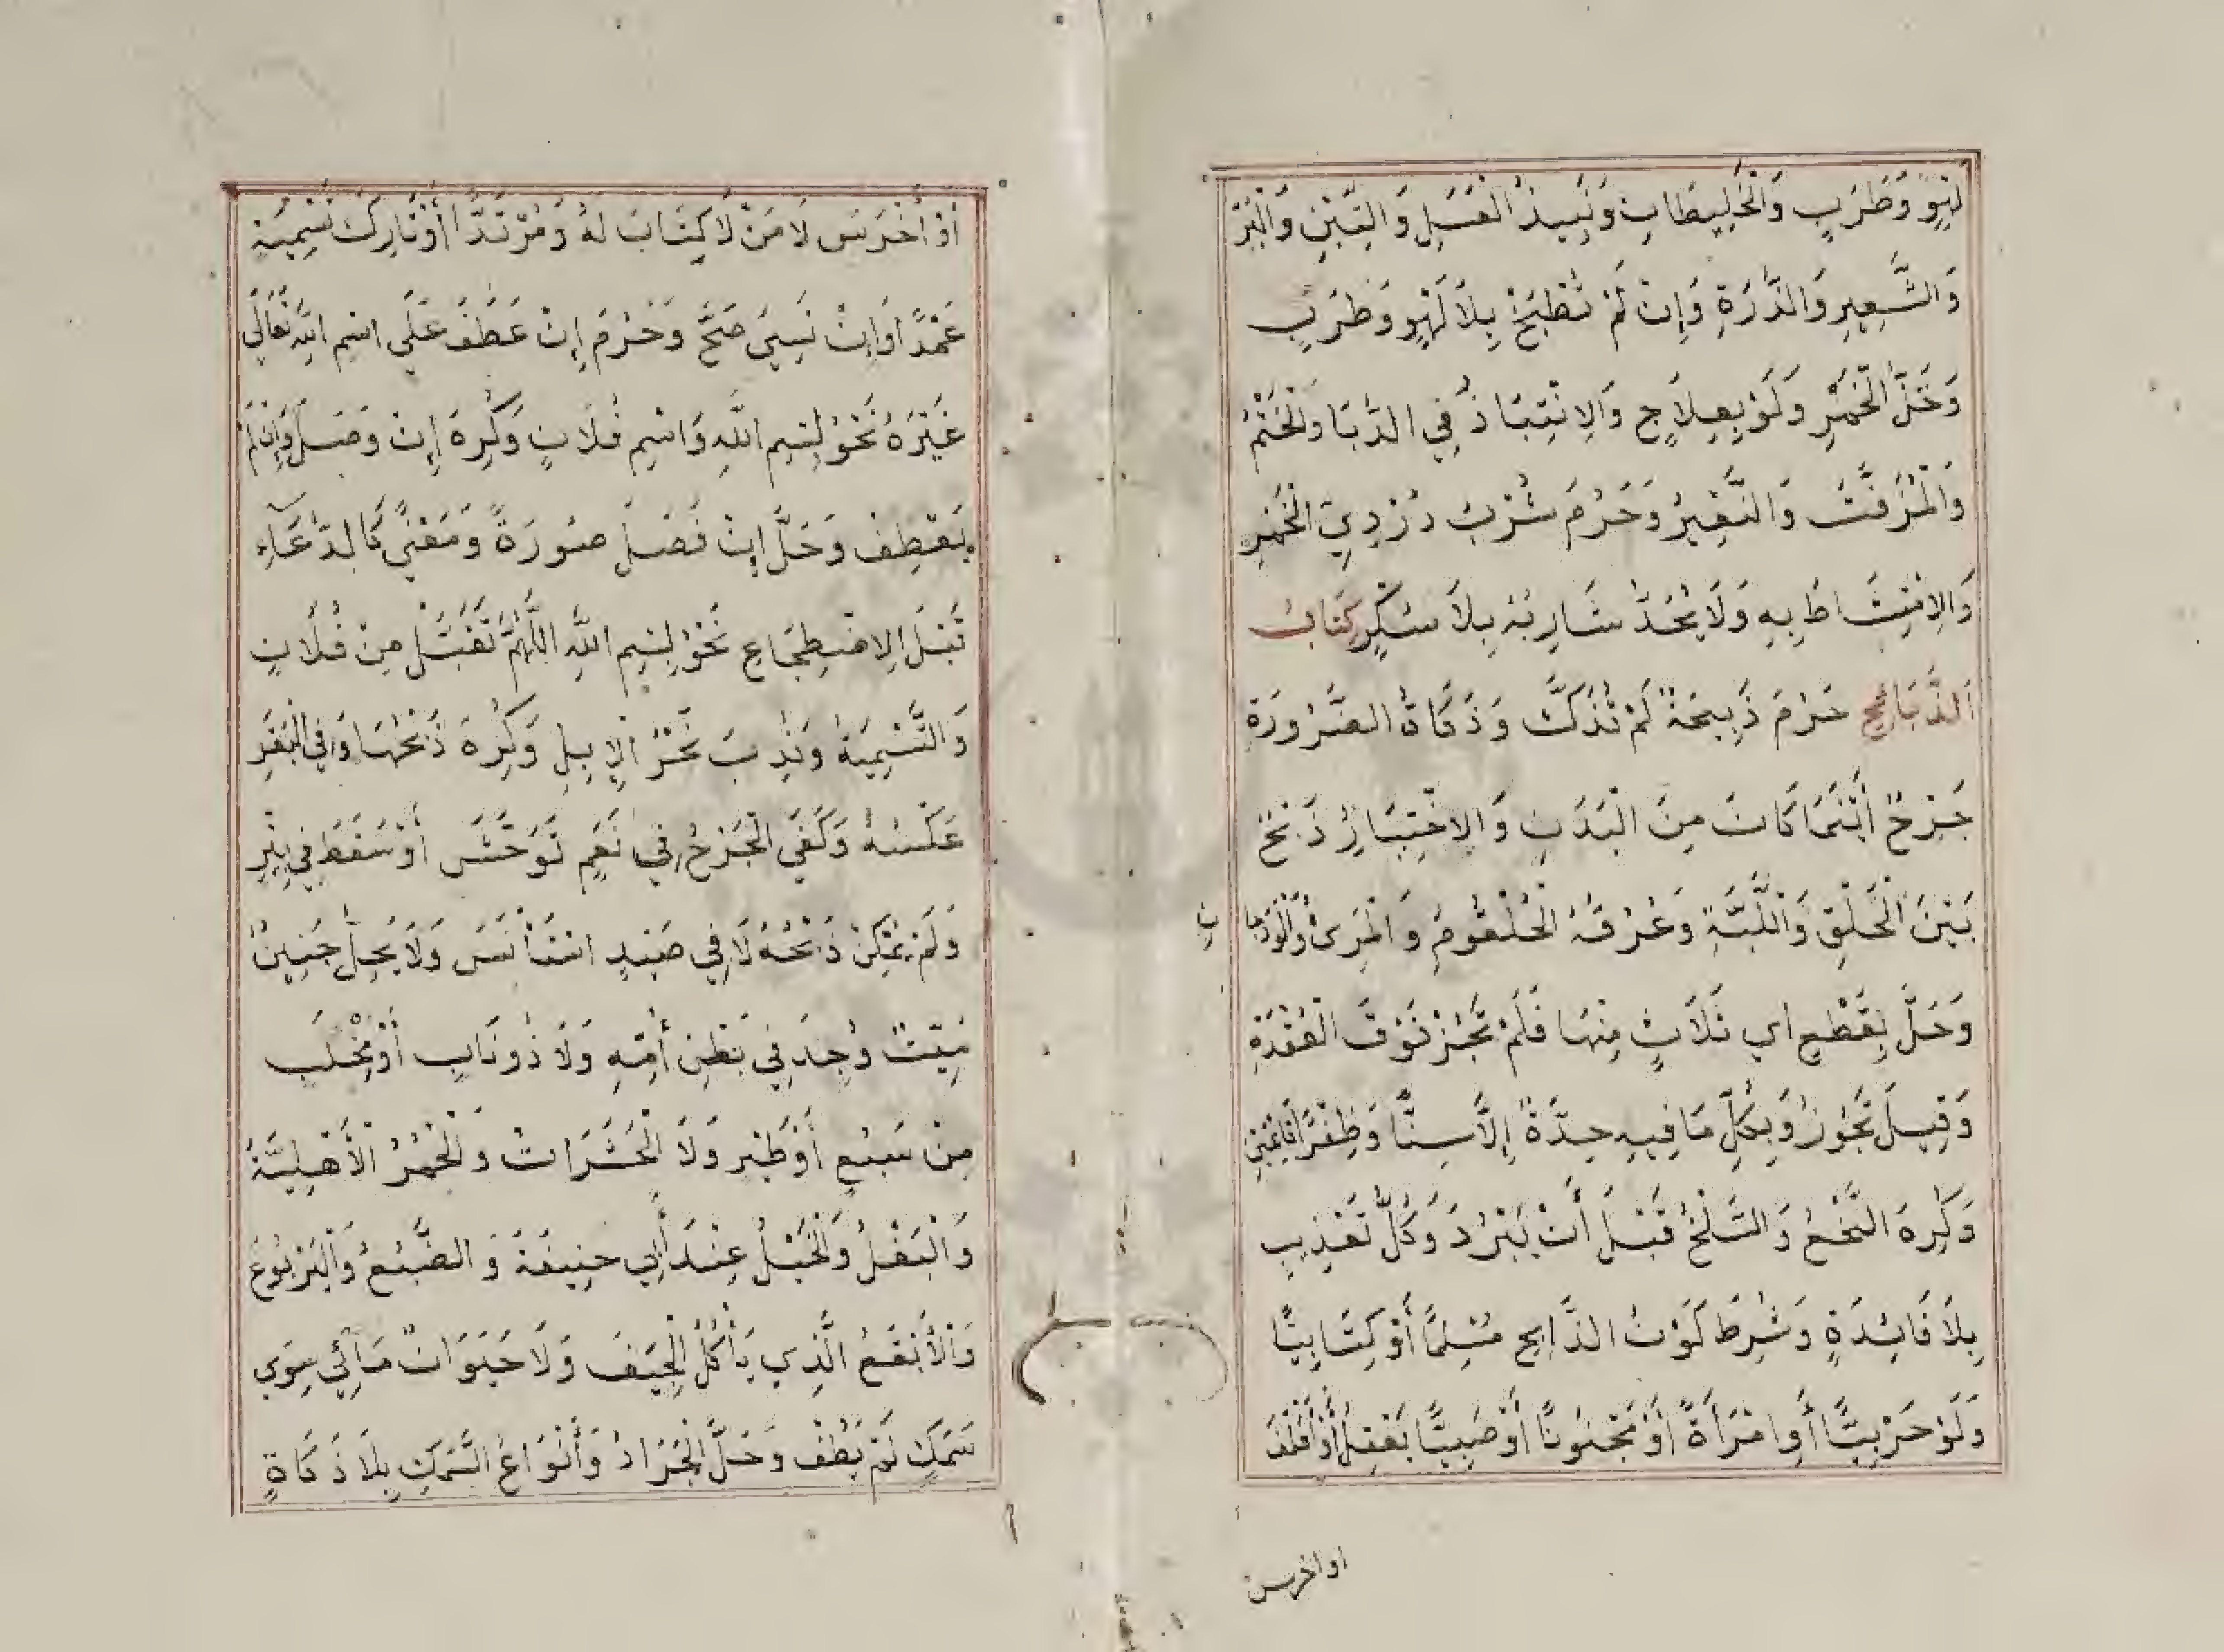 لَهْوٍ وَطَرَبٍ وَالْخَلِيطَانِ وَنَبِيذُ الْعَسَلِ وَالتِّينِ وَالْبُرِّ
وَالشَّعِيرِ وَالذُّرَةِ وَإِنْ لَمْ تُطْبَخْ بِلَا لَهْوٍ وَطَرَبٍ
وَخَلُّ الْخَمْرِ وَلَوْ بِعِلَاجٍ وَالِانْتِبَاذُ فِي الدُّبَا وَالْحَنْتَمُ
وَالْمُزَفَّتُ وَالنَّقِيرُ وَحَرُمَ شُرْبُ دُرْدِيِّ الْخَمْرِ
وَالِامْتِشَاطُ بِهِ وَلَا يُحَدُّ شَارِبُهُ بِلَا سُكْرٍ كِتَابُ
الذَّبَائِحِ حَرُمَ ذَبِيحَةٌ لَمْ تُذَكَّ وَذَكَاةُ الضَّرُورَةِ
جَرْحٌ أَيْنَمَا كَانَ مِنَ الْبَدَنِ وَالِاخْتِيَارِ ذَبْحٌ
بَيْنَ الْحَلْقِ وَاللَّبَّةِ وَعُرُقُهُ الْحُلْقُومُ وَالْمَرِئُ وَالْوَدَجَا
نِ
وَحَلَّ بِقَطْعِ اي ثَلَاثٍ مِنْهَا فَلَمْ تَجُزْ فَوْقَ الْعُقْدَةِ
وَقِيلَ تَجُوزُ وَبِكُلِّ مَا فِيهِ حِدَّةٌ إِلَّا سِنًّا وَظُفْرًا قَائِمَيْنِ
وَكُرِهَ النَّخْعُ وَالسَّلْخُ قَبْلَ أَنْ يَبْرُدَ وَكُلُّ تَعْذِيبٍ
بِلَا فَائِدَةٍ وَشُرِطَ كَوْنُ الذَّابِحِ مُسْلِمًا أَوْ كِتَابِيًّا
وَلَوْ حَرْبِيًّا أَوِ امْرَأَةً أَوْ مَجْنُونًا أَوْ صَبِيًّا يَعْقِلُ أَوْ أَقْلَفَ
او اخرس
أَوْ أَخْرَسَ لَا مَنْ لَا كِتَابَ لَهُ وَمُرْتَدًّا أَوْ تَارِكَ تَسْمِيَةٍ
عَمْدًا وَإِنْ نَسِيَ صَحَّ وَحَرُمَ إِنْ عَطَفَ عَلَى اسْمِ اللَّهِ تَعَالَى
غَيْرَهُ نَحْوُ بِسْمِ اللَّهِ وَاسْمِ فُلَانٍ وَكُرِهَ إِنْ وَصَلَ وَإِنْ لَمْ
يَعْطِفْ وَحَلَّ إِنْ فَصَلَ صُورَةً وَمَعْنًى كَالدُّعَاءِ
قَبْلَ الِاضْطِجَاعِ نَحْوُ بِسْمِ اللَّهِ اللَّهُمَّ تَقَبَّلْ مِنْ فُلَانٍ
وَالتَّسْمِيَةُ وَنُدِبَ نَحْرُ الْإِبِلِ وَكُرِهَ ذَبْحُهَا وَفِي الْبَقَرِ
عَكْسُهُ وَكَفَى الْجَرْحُ فِي نَعَمٍ تَوَحَّشَ أَوْ سَقَطَ فِي بِئْرٍ
وَلَمْ يُمْكِنْ ذَبْحُهُ لَا فِي صَيْدٍ اسْتَأْنَسَ وَلَا يَحِلُّ جَنِينٌ
مَيِّتٌ وُجِدَ فِي بَطْنِ أُمِّهِ وَلَا ذُو نَابٍ أَوْ مِخْلَبٍ
مِنْ سَبُعٍ أَوْ طَيْرٍ وَلَا الْحَشَرَاتُ وَالْحُمُرُ الْأَهْلِيَّةُ
وَالْبَغْلُ وَالْخَيْلُ عِنْدَ أَبِي حَنِيفَةَ وَالضَّبُعُ وَالْيَرْبُوعُ
وَالْأَبْقَعُ الَّذِي يَأْكُلُ الْجِيَفَ وَلَا حَيَوَانٌ مَائِيٌّ سِوَى
سَمَكٍ لَمْ يَطْفُ وَحَلَّ الْجَرَادُ وَأَنْوَاعُ السَّمَكِ بِلَا ذَكَاةٍ